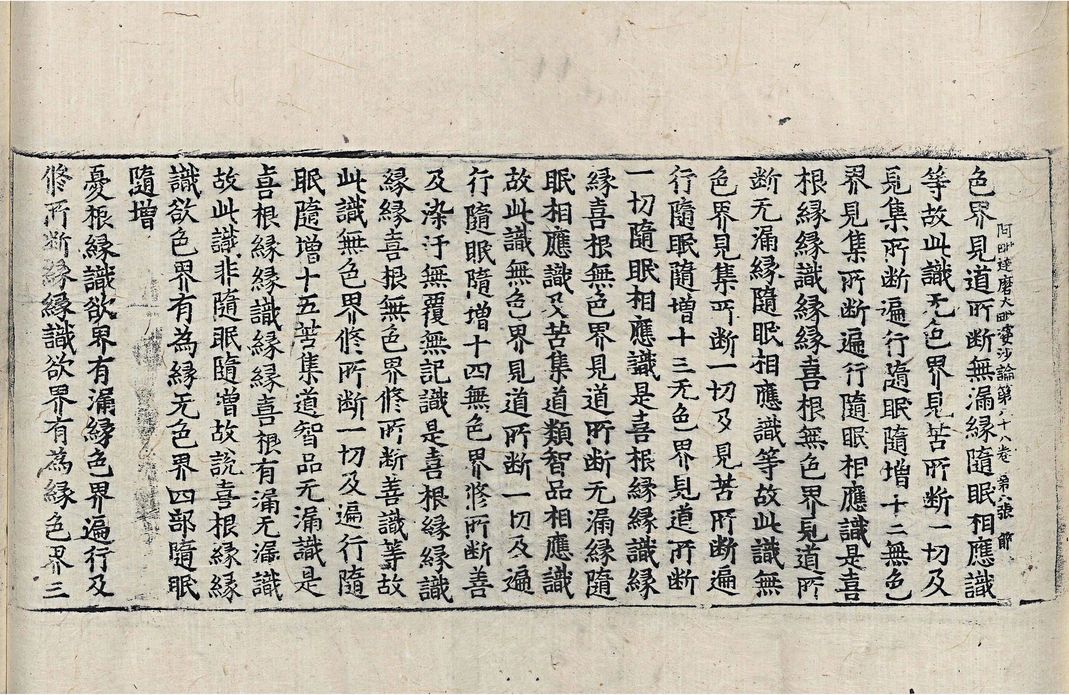 阿毗達磨大毗婆沙論第八十八卷 第六張 節
色界見道所断無漏縁隨眠相應識
等故此識无色界見苦所断一切及
見集所断遍行隨眠隨增十二無色
界見集所断遍行隨眠相應識是喜
根縁縁識縁縁喜根無色界見道所
断无漏縁隨眠相應識等故此識無
色界見集所断一切及見苦所断遍
行隨眠隨增十三无色界見道所断
一切隨眠相應識是喜根縁縁識縁
縁喜根無色界見道所断无漏縁隨
眠相應識及苦集道類智品相應識
故此識無色界見道所断一切及遍
行隨眠隨增十四無色界修所断善
及染汙無覆無記識是喜根縁縁識
縁縁喜根無色界修所断善識等故
此識無色界修所断一切及遍行隨
眠隨增十五苦集道智品无漏識是
喜根縁縁識縁縁喜根有漏无漏識
故此識非隨眠隨增故說喜根縁縁
識欲色界有為縁无色界四部隨眠
隨增
憂根縁識欲界有漏縁色界遍行及
修所断縁縁識欲界有為縁色界三